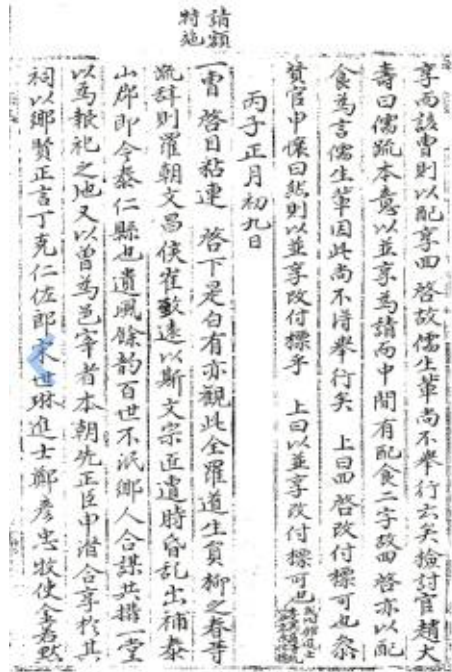 請額
特施
享而該曹則以配享回 啓故儒生輩尚不舉行云矣檢討官趙大
壽曰儒疏本意以並享為請而中間有配食二字故回 啓亦以配
食為言儒生輩因此尚不得舉行矣 上曰回 啓改付標可也叅
贊官申懷曰然則以並享改付標乎 上曰以並享改付標可也
丙子正月初九日
一曹 啓目粘連 啓下是白有亦觀此全羅道生員柳之春等
疏辞則羅朝文昌侯崔致遠以斯文宗匠遭時昏乱出補泰
山郡即今泰仁縣也遺風餘韵百世不泯鄉人合謀共搆一堂
以為報祀之地又以曾為邑宰者本朝先正臣申潜合享於其
祠以鄉賢正言丁克仁佐郎宋世琳進士鄭彥忠牧使金若默